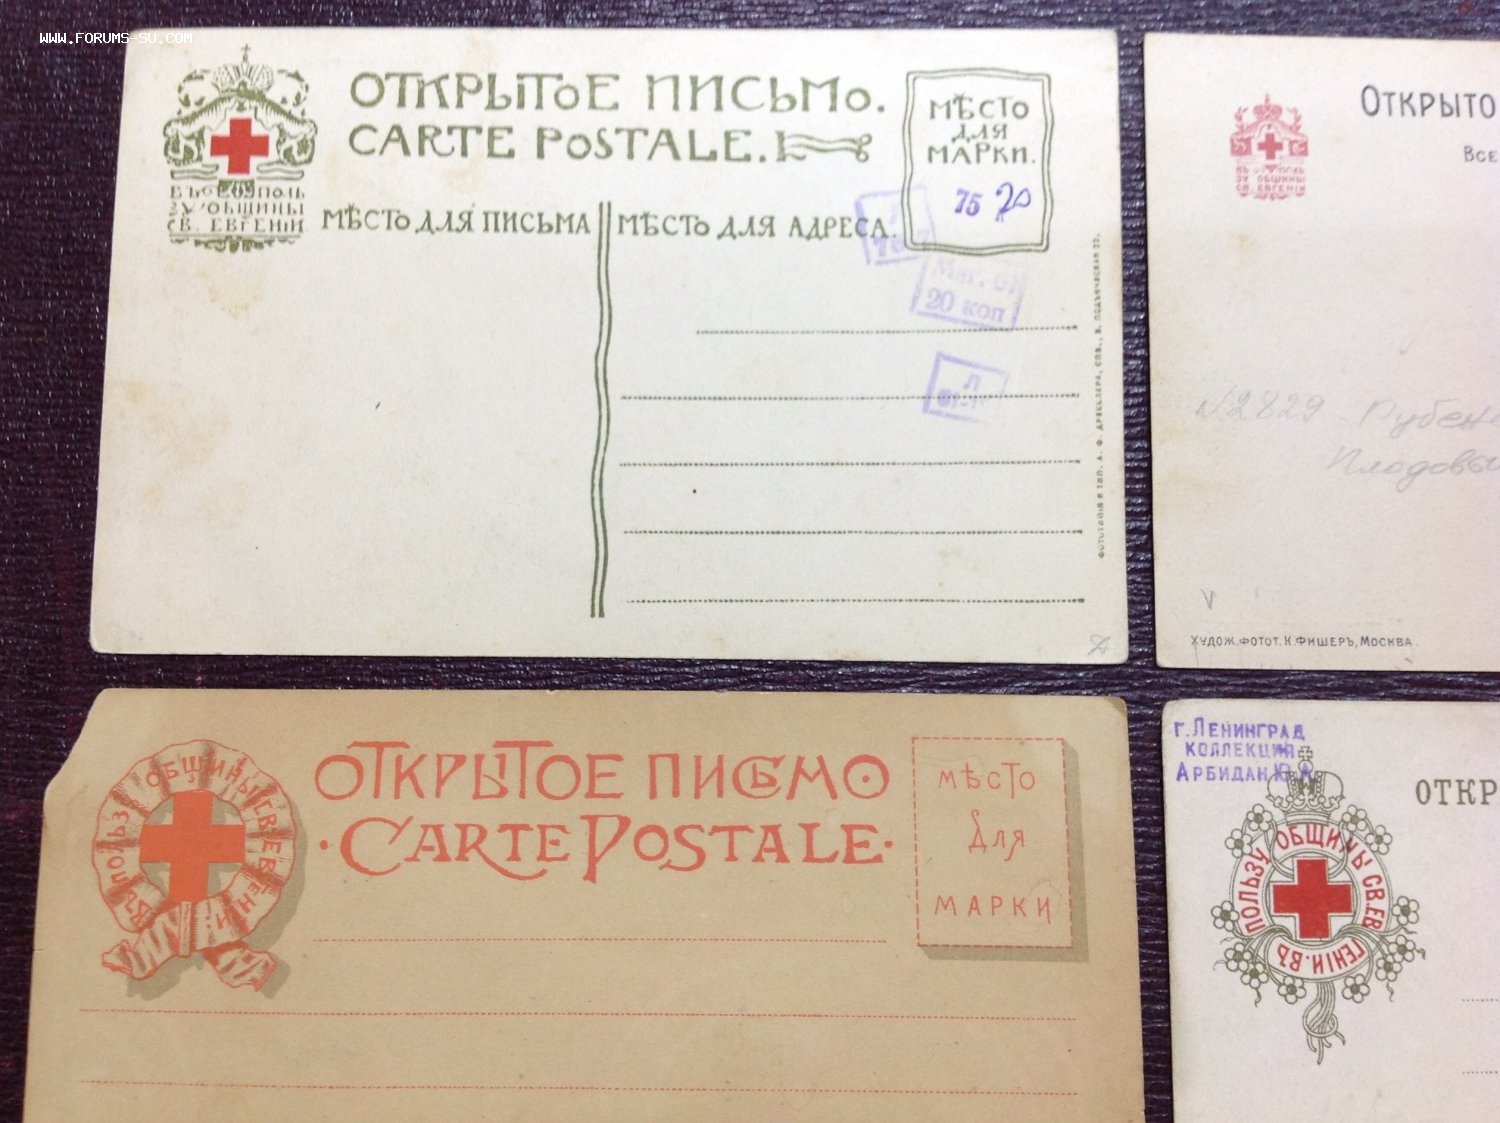 WWW.FORUMS-SU.COM
ОТКРЫТОЕ ПИСЬМО.
CARTE POSTALE.
МѢСТО
ДЛЯ
МАРКИ.
75 20
к
ВЪ ПОЛЬ
ЗУ ОБЩИНЫ
СВ. ЕВГЕНІИ
МѢСТО ДЛЯ ПИСЬМА
МѢСТО ДЛЯ АДРЕСА.
Маг. 61
20 коп
Л
ФОТОТИПІЯ И ТИП. А. Ф. ДРЕССЛЕРА, СПБ., В. ПОДЪЯЧЕСКАЯ 22.
ОТКРЫТО
ВСЕ
ВЪ ПОЛЬ
ЗУ ОБЩИНЫ
СВ. ЕВГЕНІИ
№2829 - Рубенс
Плодовы
ХУДОЖ. ФОТОТ. К. ФИШЕРЪ, МОСКВА.
ВЪ ПОЛЬЗУ ОБЩИНЫ СВ. ЕВГЕНІИ
ОТКРЫТОЕ ПИСЬМО
·CARTE POSTALE·
МѢСТО
для
МАРКИ
г. ЛЕНИНГРАД
КОЛЛЕКЦИЯ
АРБИДАН Ю.А.
ОТКР
ВЪ ПОЛЬЗУ ОБЩИНЫ СВ. ЕВГЕНІИ.